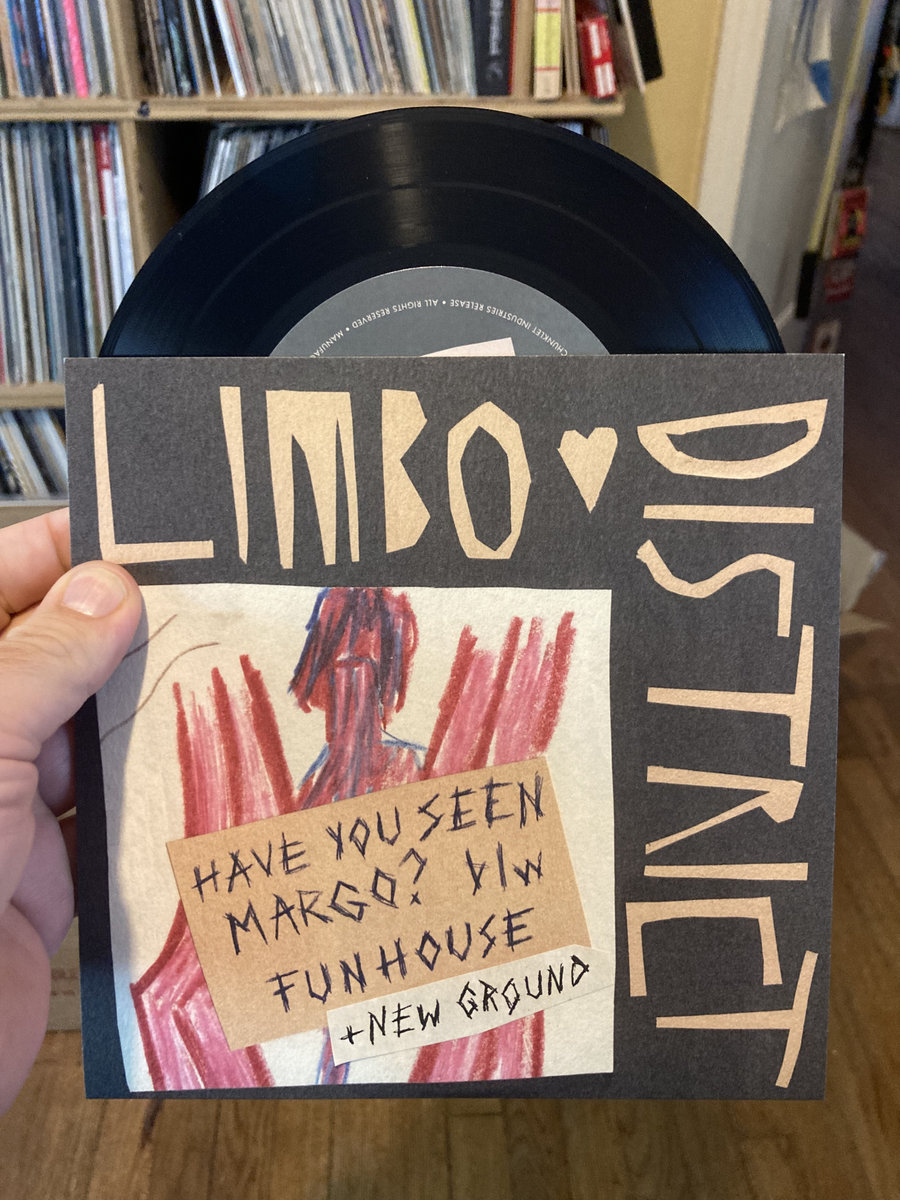 CHUNKLET INDUSTRIES RELEASE • ALL RIGHTS RESERVED •
LIMBO ♥
DISTRICT
HAVE YOU SEEN
MARGO? b/w
FUNHOUSE
+NEW GROUND